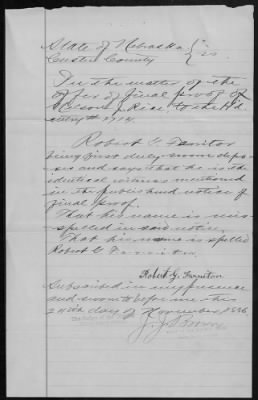 State of Nebraska } ss
Custer County
In the matter of the
offer of final proof of
Olson J. Rice to the H'd
entry #
Robert G. Farnitor
being first duly sworn depo-
ses and says that he is the
identical witness mentioned
in the published notice of
final proof.
That his name is mis-
spelled in said notice.
That his name is spelled
Robert G.
Robert G.
Subscribed in my presence
and sworn to before me this
day of November 1886
J. J.